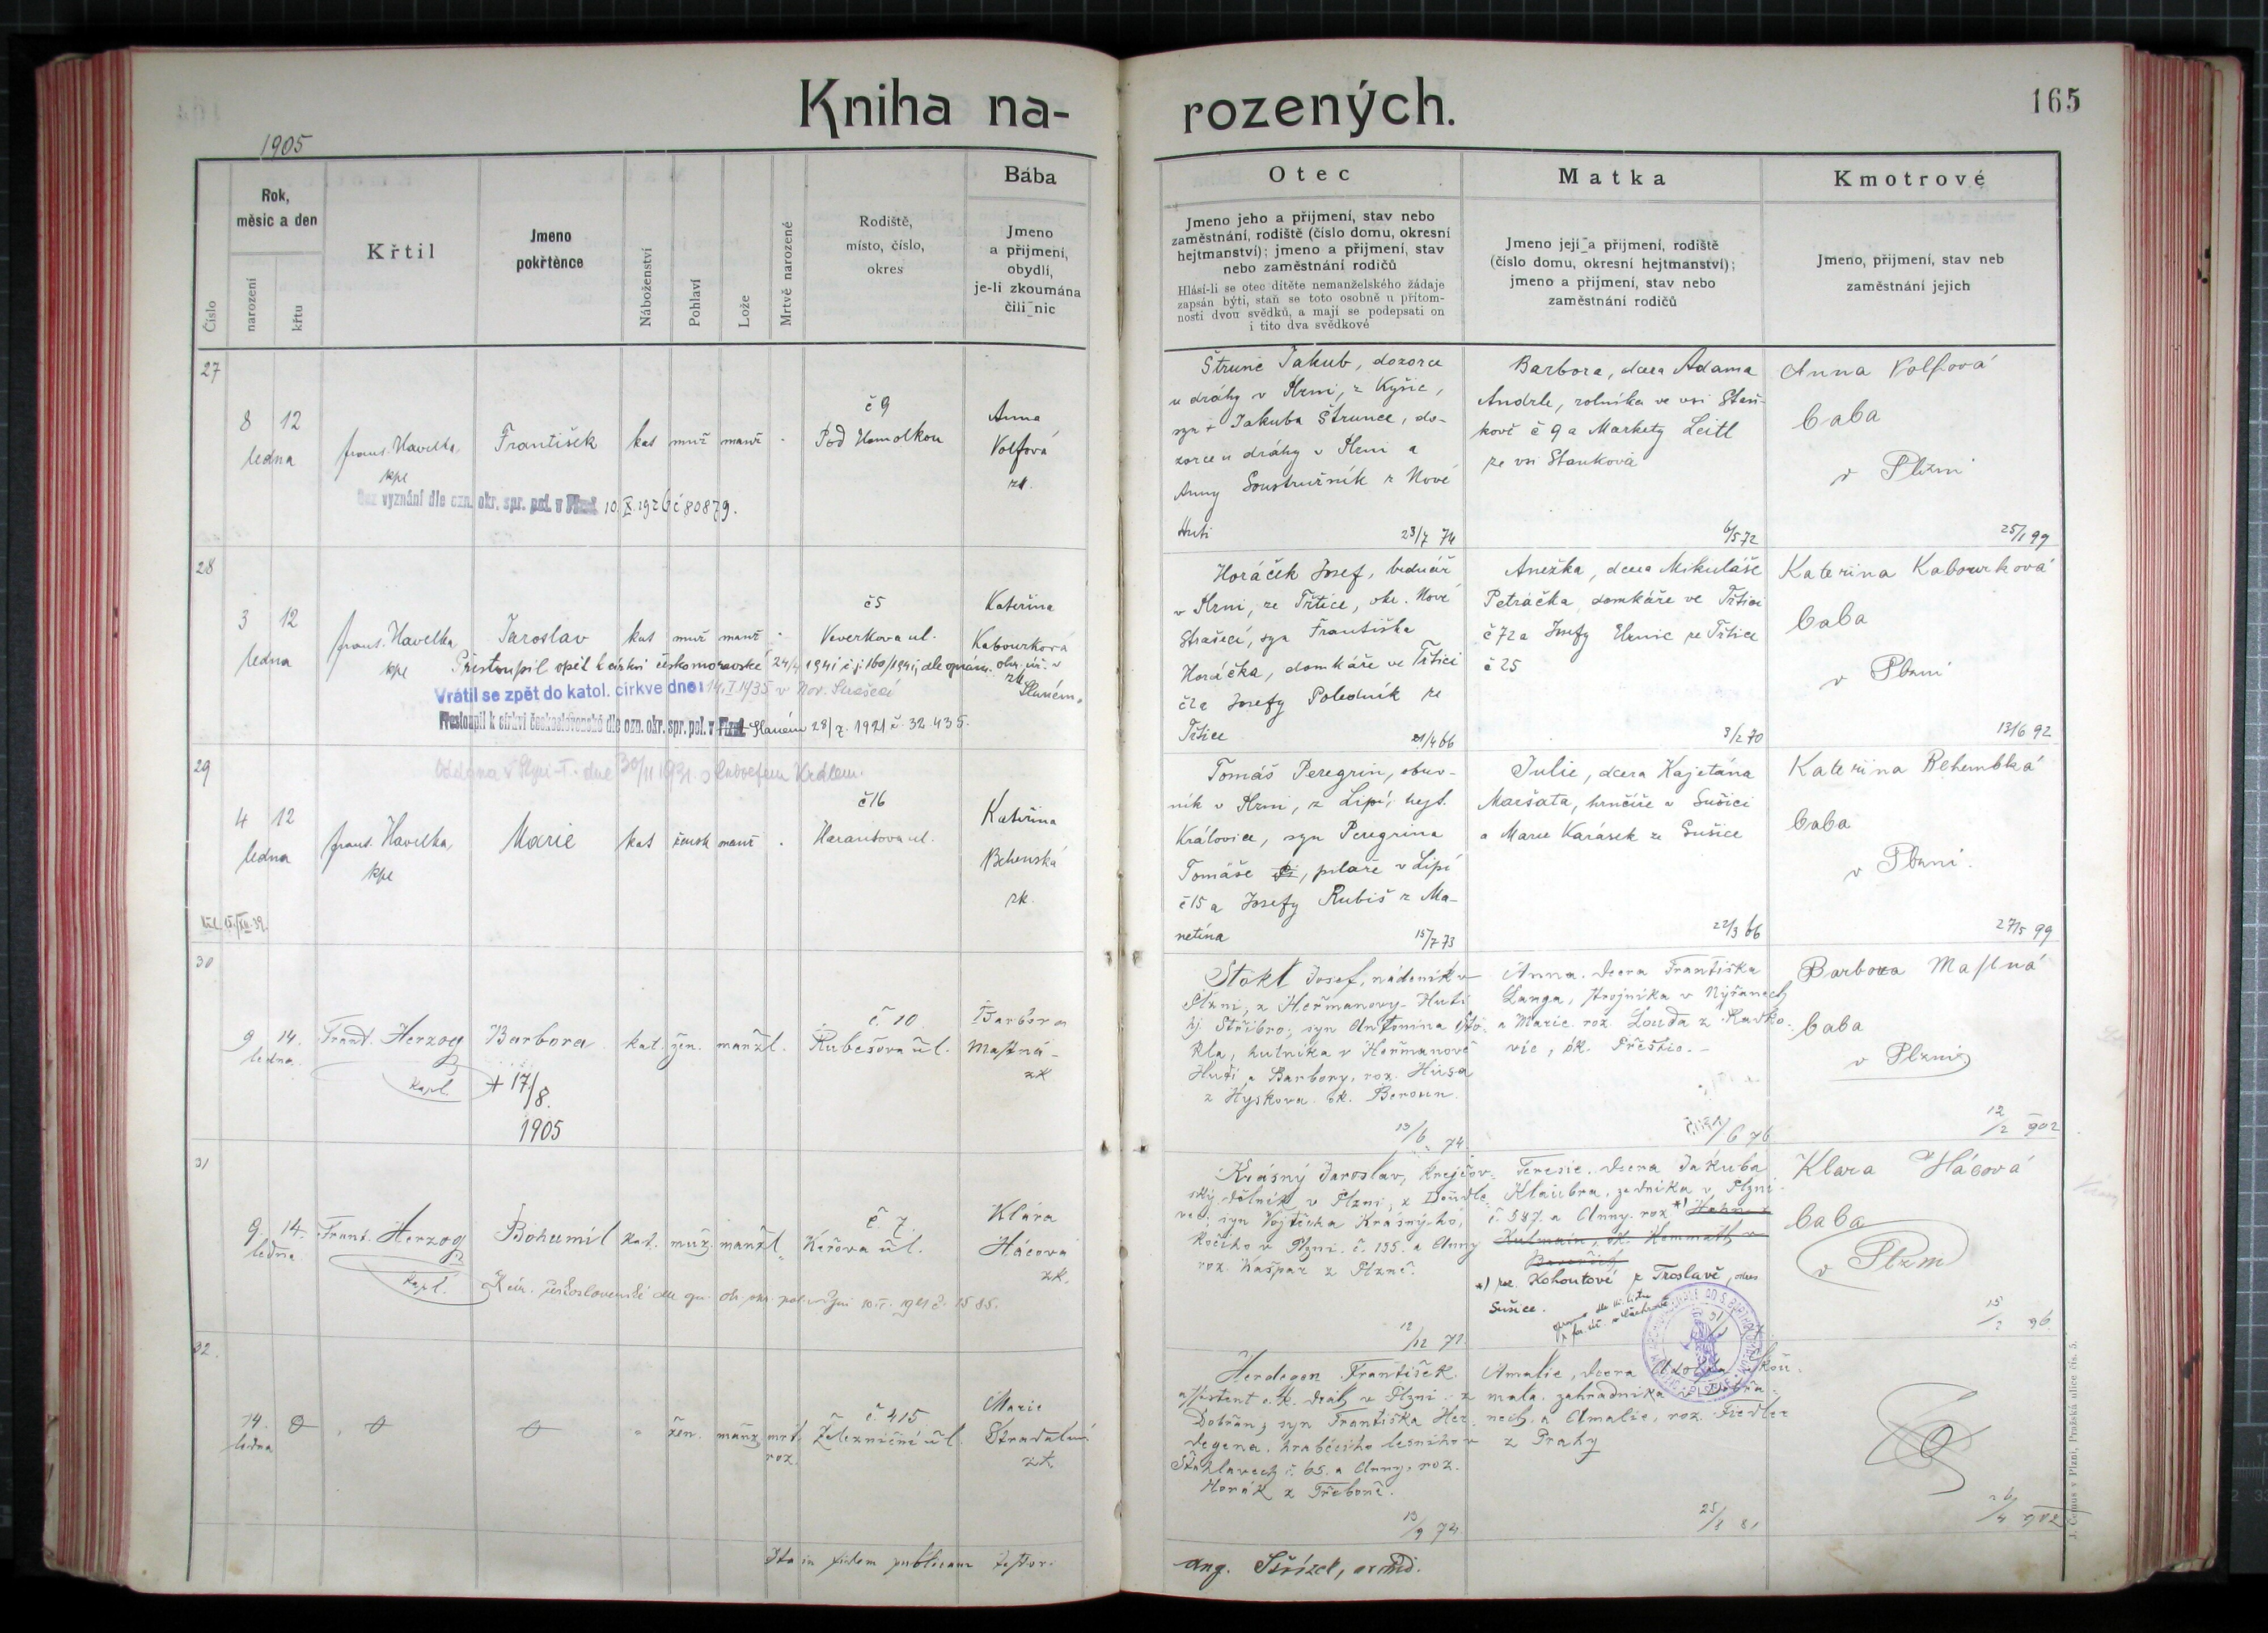 Kniha na-
rozených.
165
1905
Číslo
Rok,
měsíc a den
narození
křtu
Křtil
Jmeno
pokřtěnce
Náboženství
Pohlaví
Lože
Mrtvě narozené
Rodiště,
místo, číslo,
okres
Bába
Jmeno
a přijmení,
obydlí,
je-li zkoumána
čili nic
Otec
Jmeno jeho a přijmení, stav nebo
zaměstnání, rodiště (číslo domu, okresní
hejtmanství); jmeno a přijmení, stav
nebo zaměstnání rodičů
Hlásí-li se otec dítěte nemanželského žádaje
zapsán býti, staň se toto osobně u přítom-
nosti dvou svědků, a mají se podepsati on
i tito dva svědkové
Matka
Jmeno její a přijmení, rodiště
(číslo domu, okresní hejtmanství);
jmeno a přijmení, stav nebo
zaměstnání rodičů
Kmotrové
Jmeno, přijmení, stav neb
zaměstnání jejich
27
8 12
ledna
frant. Havelka,
kpl
František
kat muž manž
č 9
Pod Homolkou
Anna
Volfová
zk.
Bez vyznání dle ozn. okr. spr. pol. v Plzni 10.X.1926 č 80879.
Štrunc Jakub, dozorce
u dráhy v Plzni, z Kyšic,
syn + Jakuba Štrunce, do-
zorce u dráhy v Plzni a
Anny Soustružník z Nové
Huti
23/7 74
Barbora, dcera Adama
Andrle, rolníka ve vsi Staň-
kově č 9 a Markety Leitl
ze vsi Stankova
6/5 72
Anna Volfová
baba
v Plzni
25/1 99
28
3 12
ledna
frant. Havelka
kpl
Jaroslav
kat muž manž
č 5
Veverkova ul.
Kateřina
Kabourková
zk.
Přestoupil opět k církvi českomoravské 24/4 1941 č.j. 160/1941, dle oznám. okr. úř. v
Slaném.
Vrátil se zpět do katol. církve dne: 14.I 1935 v Nov. Strašecí
Přestoupil k církvi československé dle ozn. okr. spr. pol. v Plzni Slaném 28/7. 1921 č. 32.435.
Horáček Josef, bednář
v Plzni, ze Třtice, okr. Nové
Strašecí, syn Františka
Horáčka, domkáře ve Třtici
č 2 a Josefy Poledník ze
Třtice
21/4 66
Anežka, dcera Mikuláše
Petráčka, domkáře ve Třtici
č 72 a Josefy ze Třtice
č 25
3/2 70
Katerina Kabourková
baba
v Plzni
13/6 92
29
4 12
ledna
frant. Havelka,
kpl
Marie
kat žensk manž
č 16
Harantova ul.
Kateřina
Behenská
zk.
Oddána v Plzni-I. dne 30/11 1931 s Ludvíkem Krdlem.
Tomáš Peregrin, obuv-
ník v Plzni, z Lipí, hejt.
Kralovice, syn Peregrina
Tomáše, pilaře v Lipí
č 15 a Josefy Rubiš z Ma-
netína
15/7 73
Julie, dcera Kajetána
Maršata, hrnčíře v Sušici
a Marie Karásek ze Sušice
22/3 66
Katerina
baba
v Plzni.
27/5 99
30
9. 14.
ledna.
Frant. Herzog
kapl.
Barbora
+ 17/8.
1905
kat. žen. manžl.
č. 10.
Rubešova ul.
Barbora
Mastná
zk
Stökl Josef, nádeník v
Plzni, z Heřmanovy-Huti
hj. Stříbro; syn Antonína Stö-
kla, hutníka v Heřmanově
Huti a Barbory, roz. Husa
z Hyskova ok. Beroun.
13/6 74.
Anna, dcera Františka
Langa, strojníka v Nýřanech
a Marie roz. Louda z Radko-
vic, ok. Přeštic.
6 76
Barbora Mastná
baba
v Plzni
12/2 902
31
9. 14.
ledna.
Frant. Herzog
kapl.
Bohumil
kat. muž. manžl.
č. 7
Keřova ul.
Klára
Hácová
zk.
K cír. československé dle
Krásný Jaroslav, krejčov-
ský dělník v Plzni, z Doudle-
vec; syn Vojtěcha Krásného,
kočího v Plzni č. 135. a Anny
roz. Kašpar z Plzně.
12/12 72.
Teresie, dcera Jakuba
Klaubra, zedníka v Plzni
č. 587. a Anny roz. *)
*) roz. Kohoutové z Troslavě, okres
Sušice.
Klara Hácová
baba
v Plzni
15/2 96.
32.
14.
ledna
žen. manž. mrt.
roz.
č. 415
Železniční ul.
Marie
zk.
Herdegen František
assistent c.k. drah v Plzni z
Dobřan; syn Františka Her-
degena, hraběcího lesního v
Štáhlavech č. 65. a Anny, roz.
Horák z Třeboně.
13/9 74
Amalie, dcera Adolfa Skou-
mala, zahradníka v Dobřa-
nech, a Amalie, roz. Fiedler
z Prahy
25/3 81
26/4 902
Ita in fidem publicam testor:
J. Černus v Plzni, Pražská ulice čís. 5.